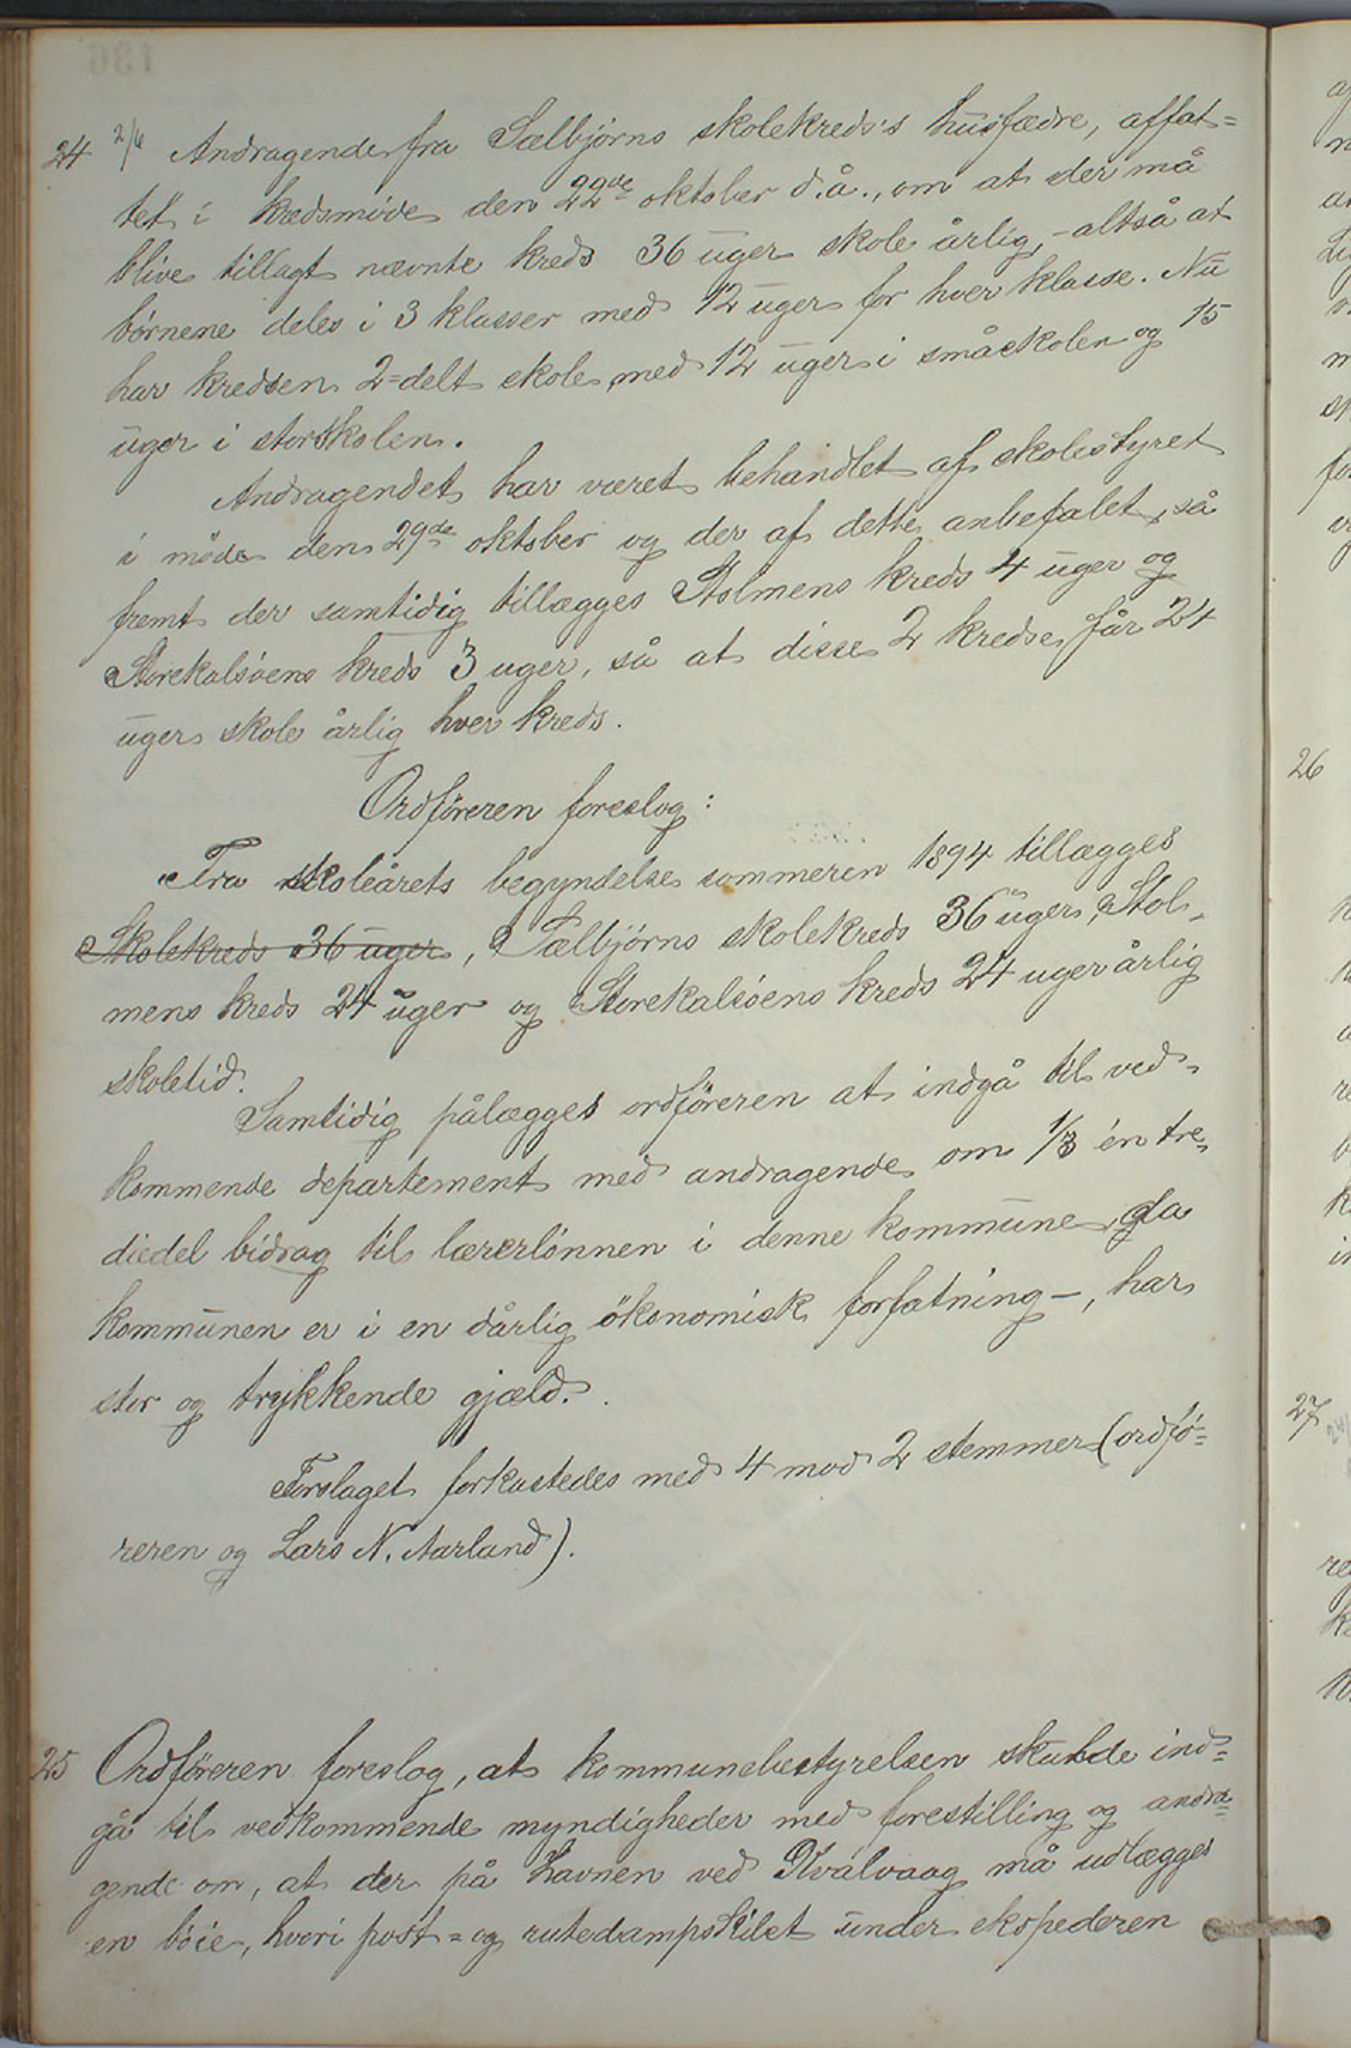 136
24 2/6 Andragende fra Sælbjørns skolekreds's husfædre, affat=
tet i kredsmøde den 22de oktober d.å., om at der må
blive tillagt nævnte kreds 36 uger skole årlig, - altså at
børnene deles i 3 klasser med 12 uger for hver klasse. Nu
har kredsen 2=delt skole med 12 uger i småskolen og 15
uger i storskolen.
Andragendet har været behandlet af skolestyret
i møde den 29de oktober og der af dette anbefalet, så
fremt der samtidig tillægges Stolmens kreds 4 uger og
Storekalsøens kreds 3 uger, så at disse 2 kredse får 24
ugers skole årlig hver kreds.
Ordføreren foreslog:
Fra skoleårets begyndelse sommeren 1894 tillægges
Skolekreds 36 uger, Sælbjørns skolekreds 36 uger, Stol-
mens kreds 24 uger og Storekalsøens kreds 24 uger årlig
skoletid.
Samtidig pålægges ordføreren at indgå til ved-
kommende departement med andragende om 1/3 én tre-
diedel bidrag til lærerlønnen i denne kommune, da
kommunen er i en dårlig økonomisk forfatning -, har
stor og trykkende gjæld.
Forslaget forkastedes med 4 mod 2 stemmer (ordfø-
reren og Lars N. Aarland).
25 Ordføreren foreslog, at kommunebestyrelsen skulde ind=
gå til vedkommende myndigheder med forestilling og andra=
gende om, at der på Havnen ved Kválvaag må udlægges
en bøie, hvori post= og rutedampskibet under ekspederen
26
27